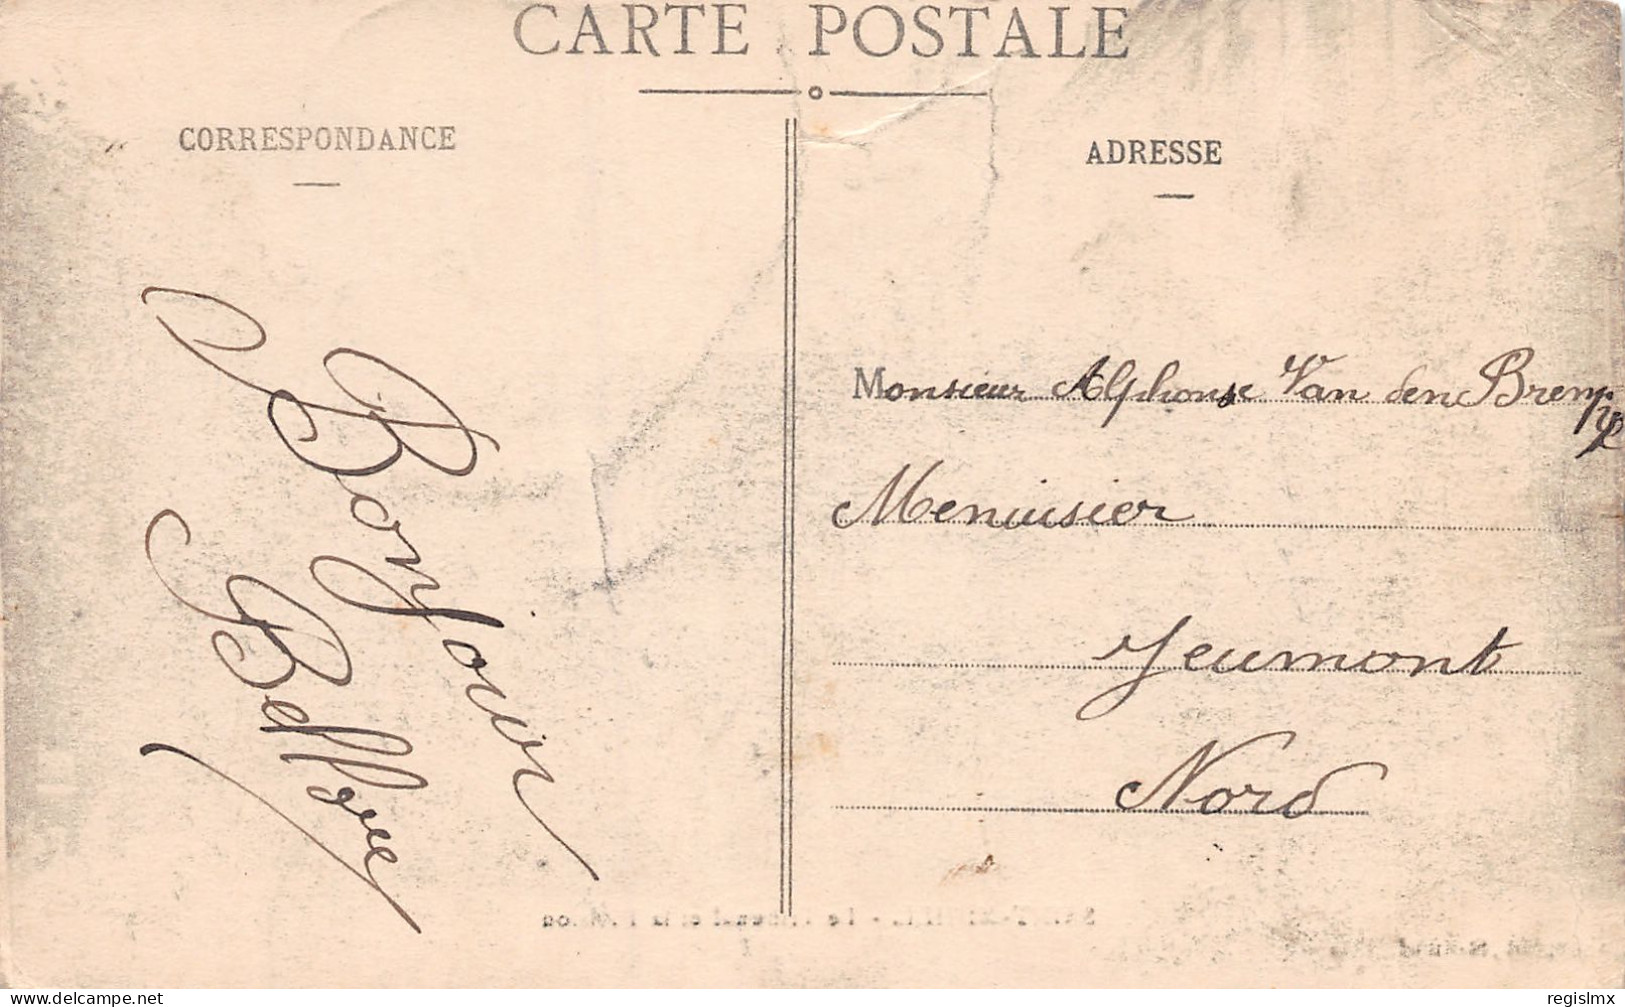 CARTE POSTALE
CORRESPONDANCE
ADRESSE
Bonjour
Monsieur Alphonse Van den
Menuisier
Jeumont
Nord
www.delcampe.net
regislmx